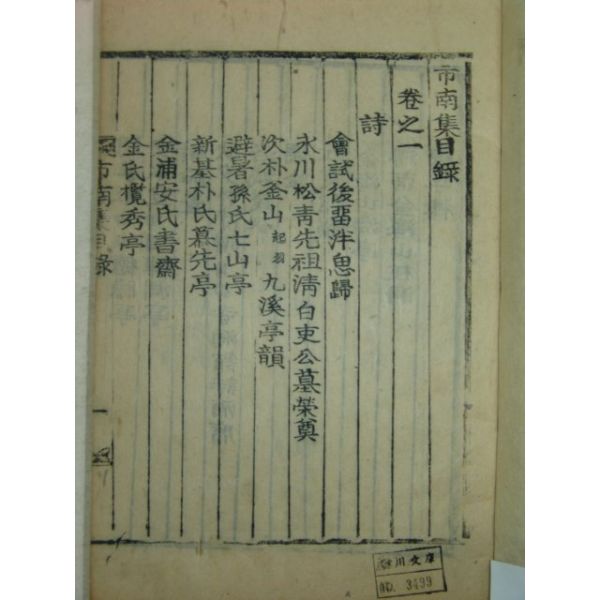 市南集目錄
卷之一
詩
會試後留泮思歸
永川松青先祖淸白吏公墓榮奠
次朴釜山起羽九溪亭韻
避暑孫氏七山亭
新基朴氏慕先亭
金浦安氏書齋
金氏攬秀亭
市南集目錄
一
川文庫
NO. 3499